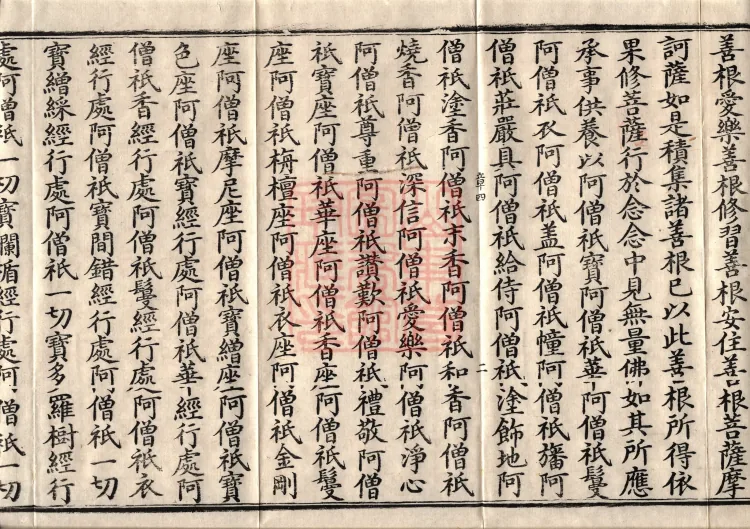 善根愛樂善根修習善根安住善根菩薩摩
訶薩如是積集諸善根已以此善根所得依
果修菩薩行於念念中見無量佛如其所應
承事供養以阿僧祇寶阿僧祇華阿僧祇鬘
阿僧祇衣阿僧祇盖阿僧祇幢阿僧祇旛阿
僧祇莊嚴具阿僧祇給侍阿僧祇塗飾地阿
章四
二
僧祇塗香阿僧祇末香阿僧祇和香阿僧祇
燒香阿僧祇深信阿僧祇愛樂阿僧祇淨心
阿僧祇尊重阿僧祇讃歎阿僧祇禮敬阿僧
祇寶座阿僧祇華座阿僧祇香座阿僧祇鬘
座阿僧祇栴檀座阿僧祇衣座阿僧祇金剛
座阿僧祇摩尼座阿僧祇寶繒座阿僧祇寶
色座阿僧祇寶經行處阿僧祇華經行處阿
僧祇香經行處阿僧祇鬘經行處阿僧祇衣
經行處阿僧祇寶間錯經行處阿僧祇一切
寶繒綵經行處阿僧祇一切寶多羅樹經行
處阿僧祇一切寶欄楯經行處阿僧祇一切